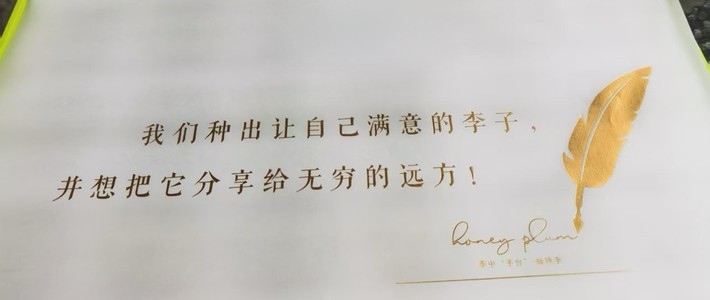 我们种出让自己满意的李子，
并想把它分享给无穷的远方！
honey plum